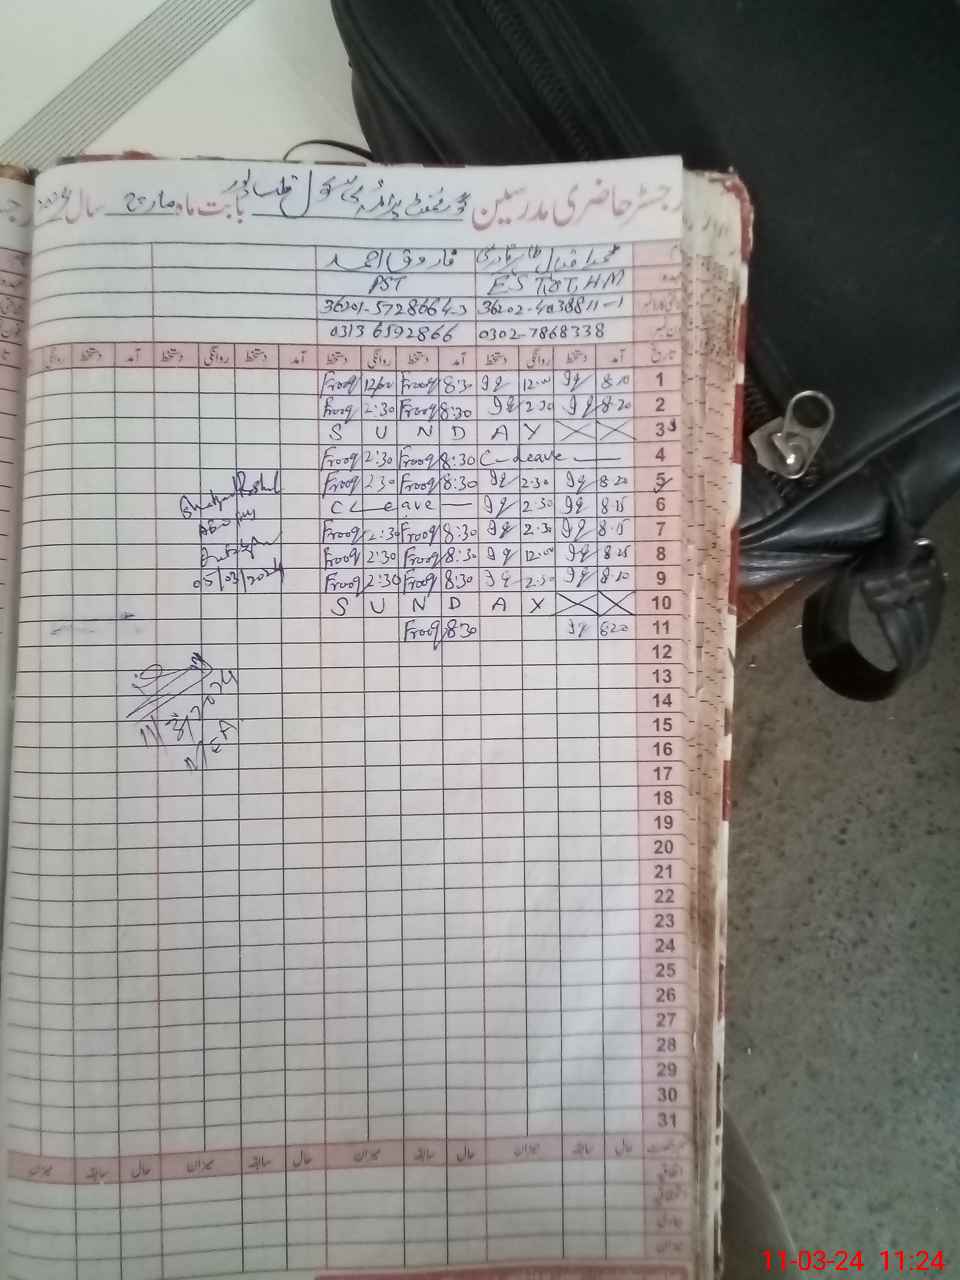 رجسٹر حاضری مدرسین گورنمنٹ پرائمری سکول قطب پور بابت ماہ مارچ سال
محمد اقبال فاروق احمد
EST, HM PST
36202-4038811-1 36201-5728664-3
0302-7868338 0313 6592866
تاریخ آمد دستخط روانگی دستخط آمد دستخط روانگی دستخط آمد دستخط روانگی دستخط آمد دستخط روانگی
1 8:10 Iq 12:00 Iq 8:30 Frooq 12:00 Frooq
2 8:20 Iq 2:30 Iq 8:30 Frooq 2:30 Frooq
3 S U N D A Y
4 C-Leave 8:30 Frooq 2:30 Frooq
5 8:20 Iq 2:30 Iq 8:30 Frooq 2:30 Frooq
6 8:15 Iq 2:30 Iq C Leave
7 8:15 Iq 2:30 Iq 8:30 Frooq 2:30 Frooq
8 8:25 Iq 12:00 Iq 8:30 Frooq 2:30 Frooq
9 8:20 Iq 2:30 Iq 8:30 Frooq 2:30 Frooq
05/03/2024
10 S U N D A Y
11 8:20 Iq 8:30 Frooq
12
13
14
11/3/2024
15
MEA
16
17
18
19
20
21
22
23
24
25
26
27
28
29
30
31
حال سابقہ میزان حال سابقہ میزان حال سابقہ میزان حال سابقہ میزان
اتفاقی
11-03-24 11:24